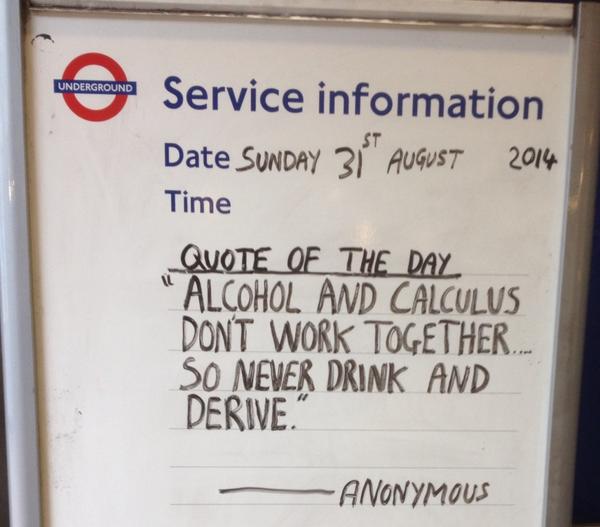 UNDERGROUND
Service information
Date SUNDAY 31ST AUGUST 2014
Time
QUOTE OF THE DAY
"ALCOHOL AND CALCULUS
DON'T WORK TOGETHER....
SO NEVER DRINK AND
DERIVE."
— ANONYMOUS